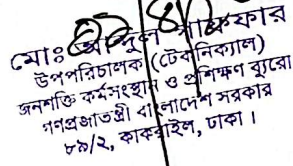 মোঃ আব্দুল গাফফার
উপপরিচালক (টেকনিক্যাল)
জনশক্তি কর্মসংস্থান ও প্রশিক্ষণ ব্যুরো
গণপ্রজাতন্ত্রী বাংলাদেশ সরকার
৮৯/২, কাকরাইল, ঢাকা।